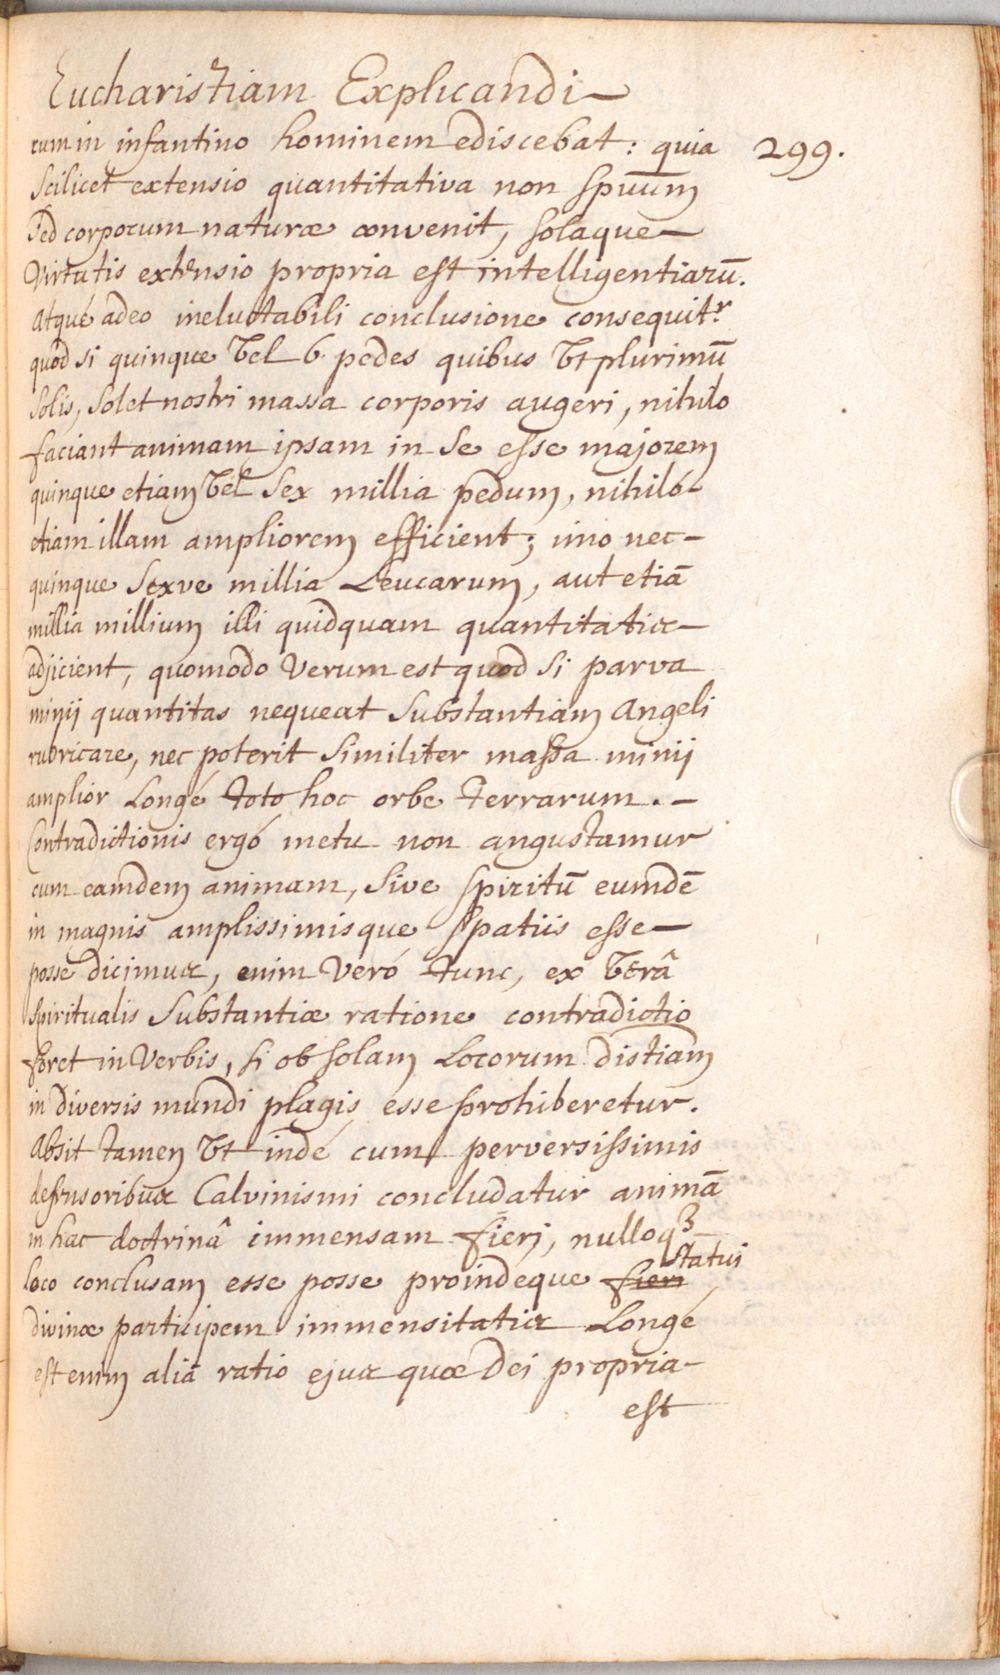 Eucharistiam Explicandi
299.
rum in infantino hominem ediscebat : quia
Scilicet extensio quantitativa non spūum
Sed corporum naturæ convenit, solaque
Virtutis extensio propria est intelligentiarū.
atqué adeo ineluctabili conclusione consequitr.
quod si quinque vel 6 pedes quibus vt plurimū
solis, solet nostri massa corporis augeri, nihilo
faciant animam ipsam in se esse majorem
quinque etiam vel sex millia pedum, nihiló
etiam illam ampliorem efficient ; imo nec
quinque sexve millia Leucarum, aut etiā
millia millium illi quidquam quantitatis
adjicient, quomodo verum est quod si parva
minij quantitas nequeat substantiam Angeli
rubricare, nec poterit similiter massa minij
amplior Longé toto hoc orbe terrarum .
Contradictionis ergó metu non angustamur
cum eamdem animam, sive spiritū eumdē
in magnis amplissimisque spatiis esse
posse dicimus, enim veró tunc, ex vērâ
spiritualis substantiæ ratione contradictio
foret in verbis, si ob solam Locorum distiam
in diversis mundi plagis esse prohiberetur.
Absit tamen vt indé cum perversissimis
defensoribus Calvinismi concludatur animā
in hac doctrinâ immensam fieri, nulloq3
loco conclusam esse posse proindeque fieri statui
divinæ participem immensitatis Longé
est enim alia ratio ejus quæ Dei propria
est